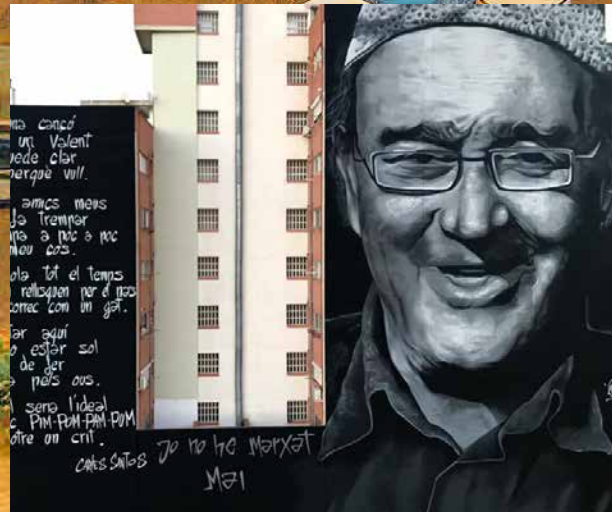 na cançó
un valent
uede clar
perquè vull.
amics meus
Ja trempar
a poc a poc
meu cos.
ola tot el temps
rellisquen per el nas
correc com un gat.
ar aquí
o estar sol
de fer
a pels ous.
serà l'ideal
c PIM-POM-PAM-PUM
otre un crit.
CARLES SANTOS
Jo no he Marxat
Mai